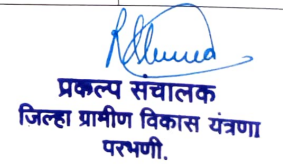 प्रकल्प संचालक
जिल्हा ग्रामीण विकास यंत्रणा
परभणी.